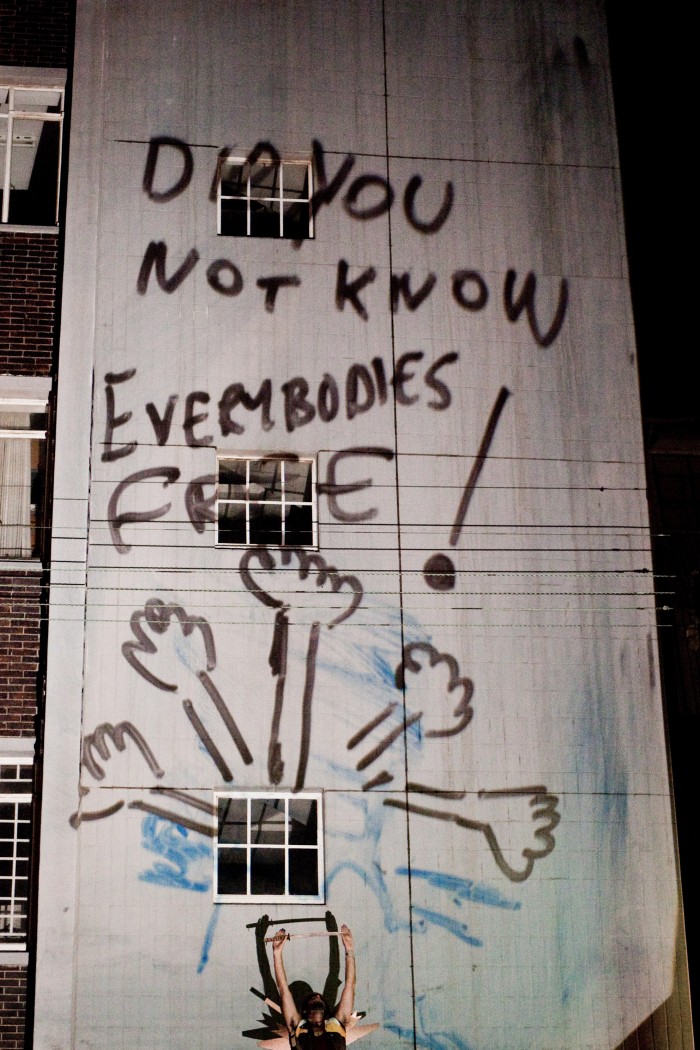 DID YOU
NOT KNOW
EVERYBODIES
FREE !